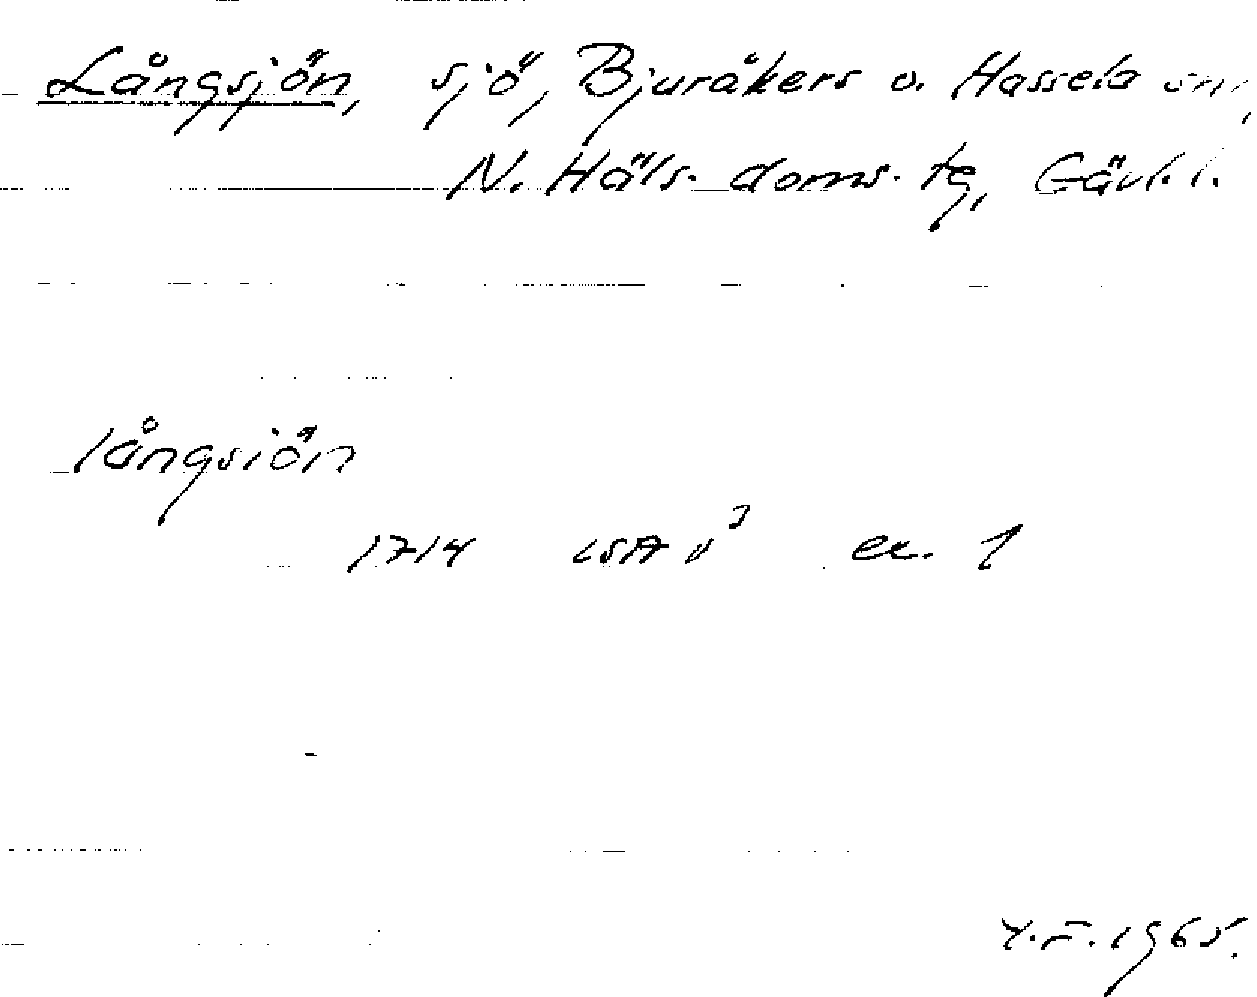 Långsjön, sjö, Bjuråkers o. Hassela snr,
N. Häls. doms. tg, Gävl. l.
långsiön
1714 LSA U³ ex. 1
Y.F. 1965.